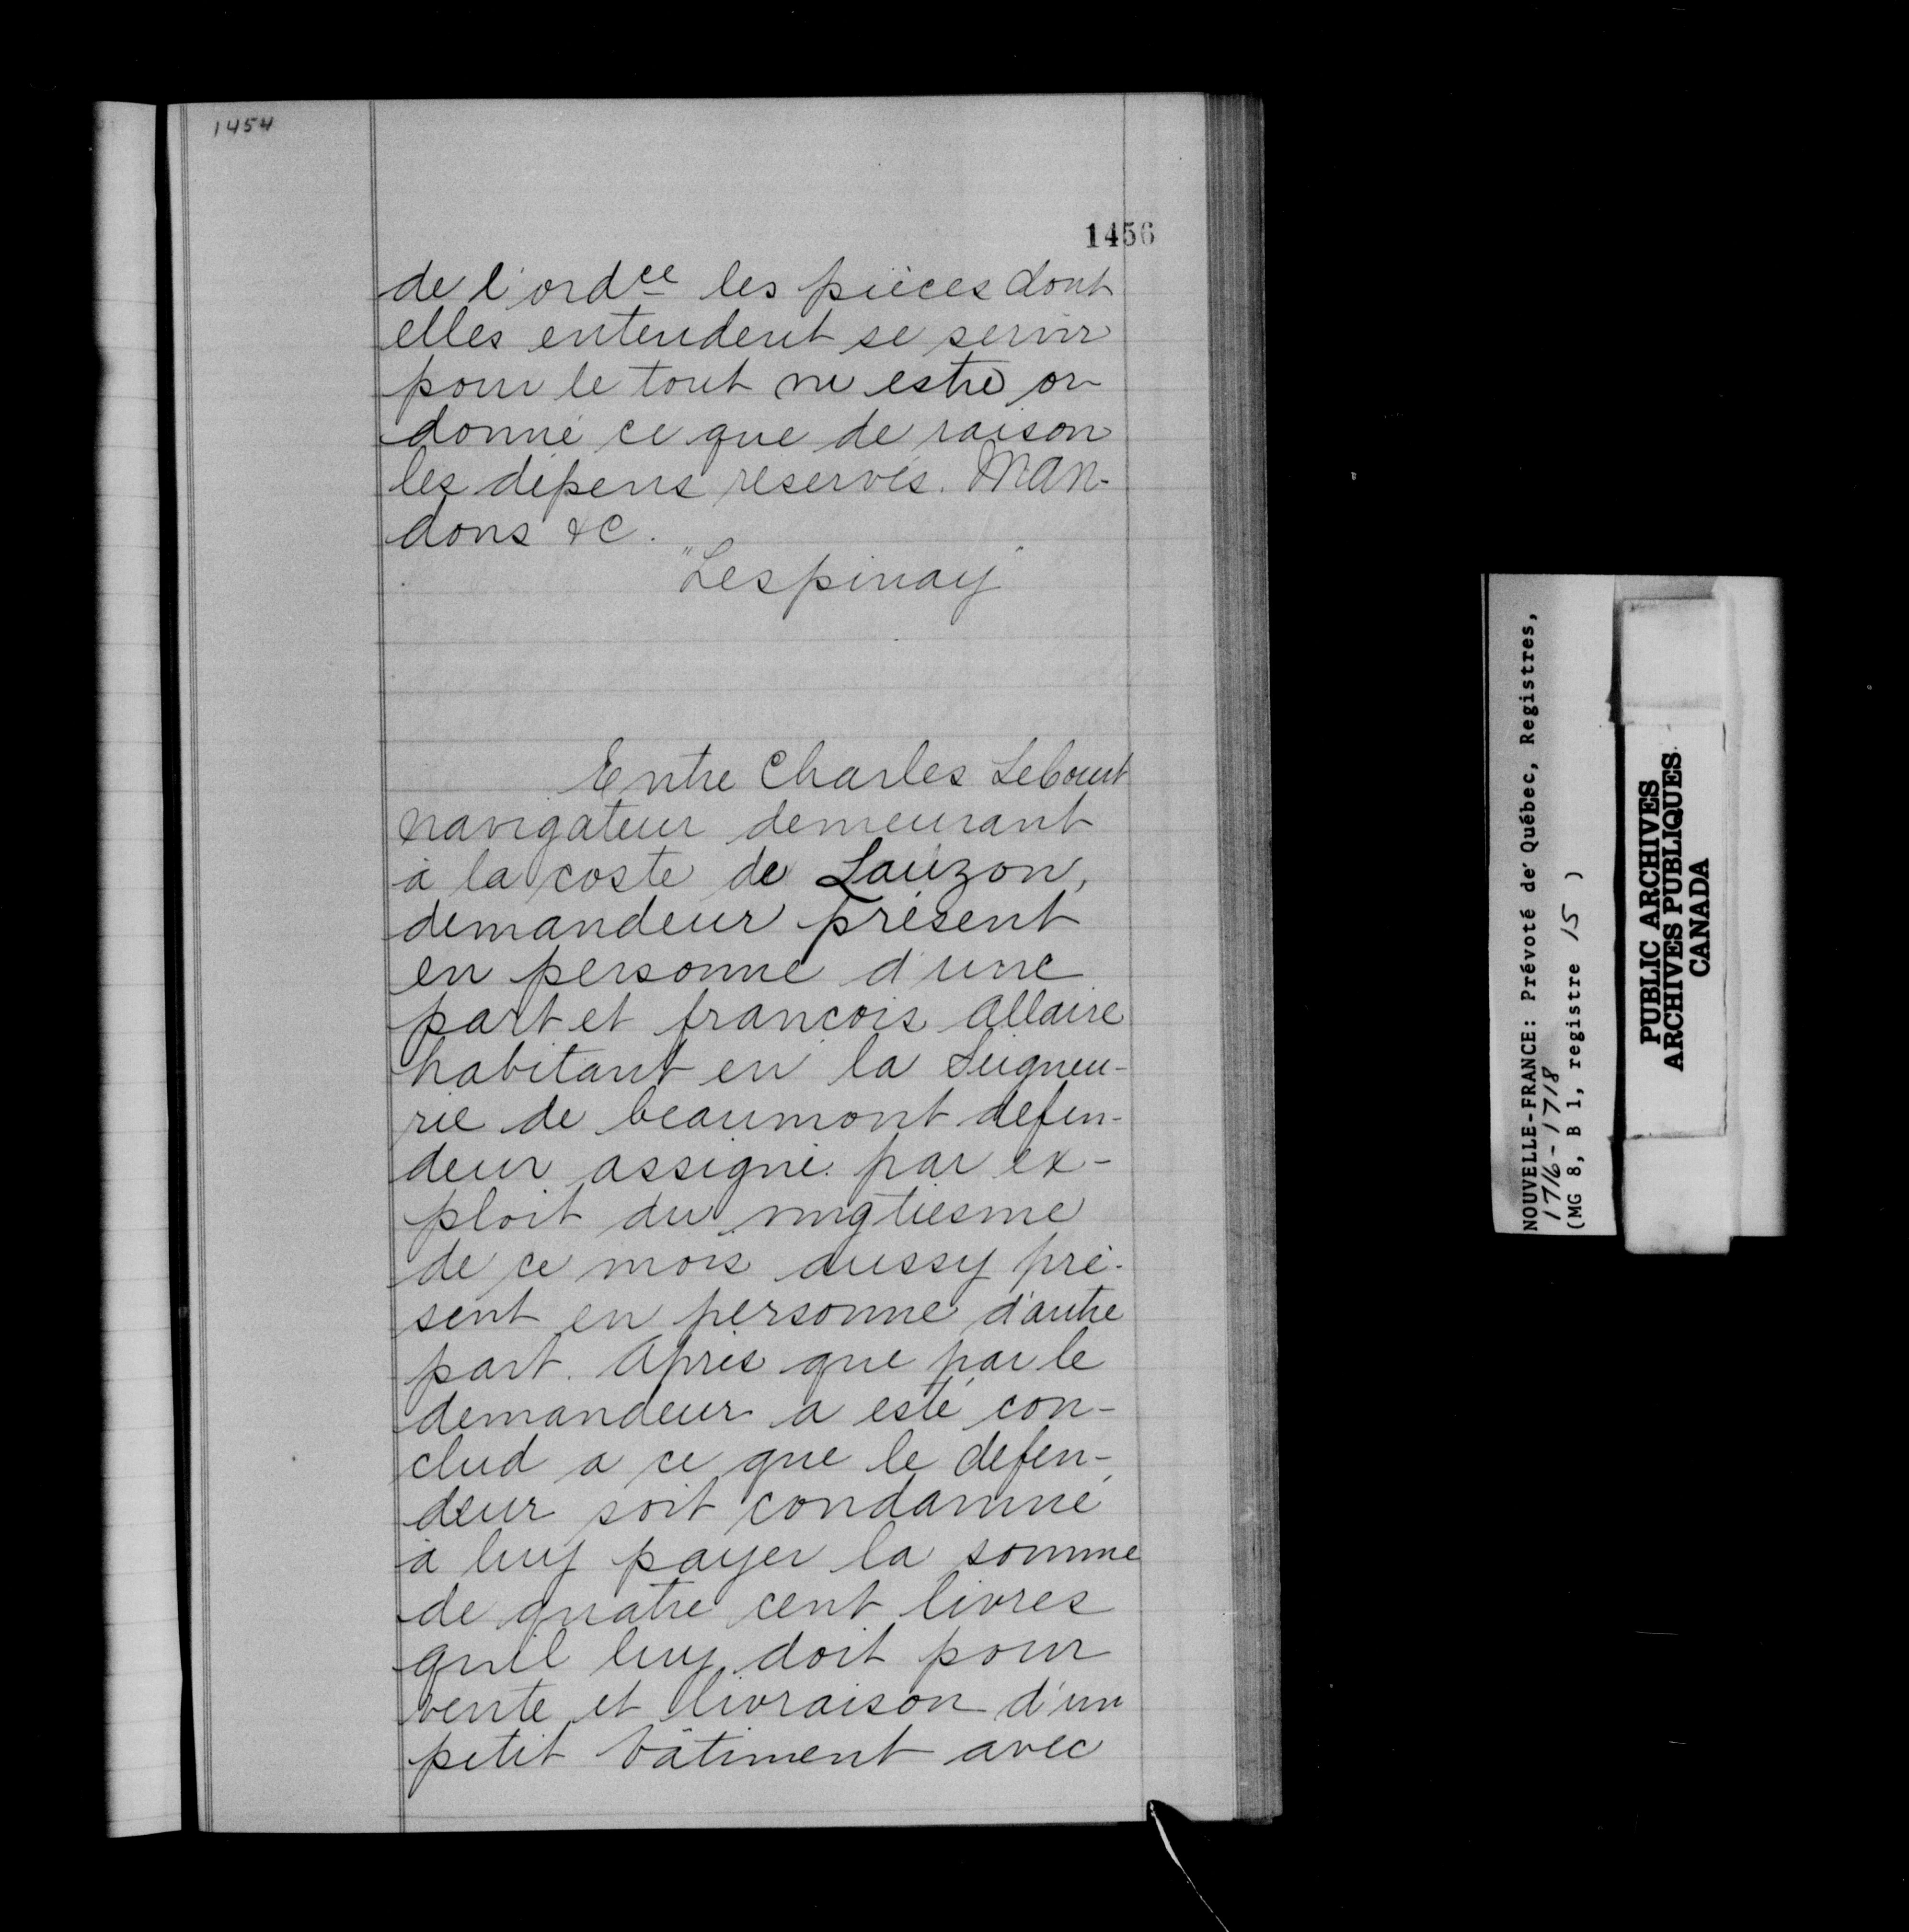 1454
1456
de l'ordce les pièces dont
elles entendent se servir
pour le tout vu estre or
donné ce que de raison
les dépens reservés. Man-
dons &c.
"Lespinay"
Entre Charles Lecourt
navigateur demeurant
à la coste de Lauzon,
demandeur présent
en personne d'une
part et francois Allaire
habitant en la Seigneu-
rie de beaumont défen-
deur assigné par ex-
ploit du vingtiesme
de ce mois aussy pré-
sent en personne d'autre
part. Après que par le
demandeur a esté con-
clud a ce que le défen-
deur soit condamné
à luy payer la somme
de quatre cent livres
qu'il luy doit pour
vente et livraison d'un
petit bâtiment avec
NOUVELLE-FRANCE: Prévoté de Québec, Registres,
1716-1718
(MG 8, B 1, registre 15 )
PUBLIC ARCHIVES
ARCHIVES PUBLIQUES
CANADA